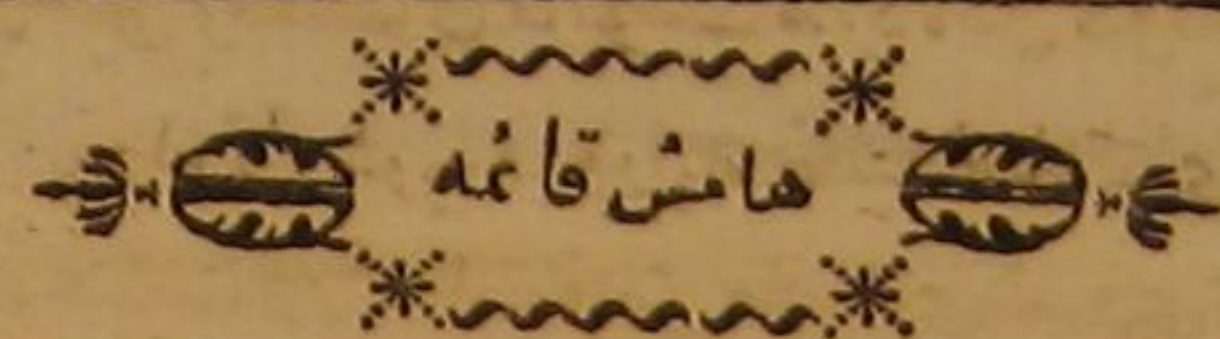 هامش قائمه